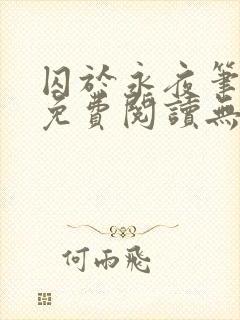 囚於永夜筆
免費閱讀無
何雨飛